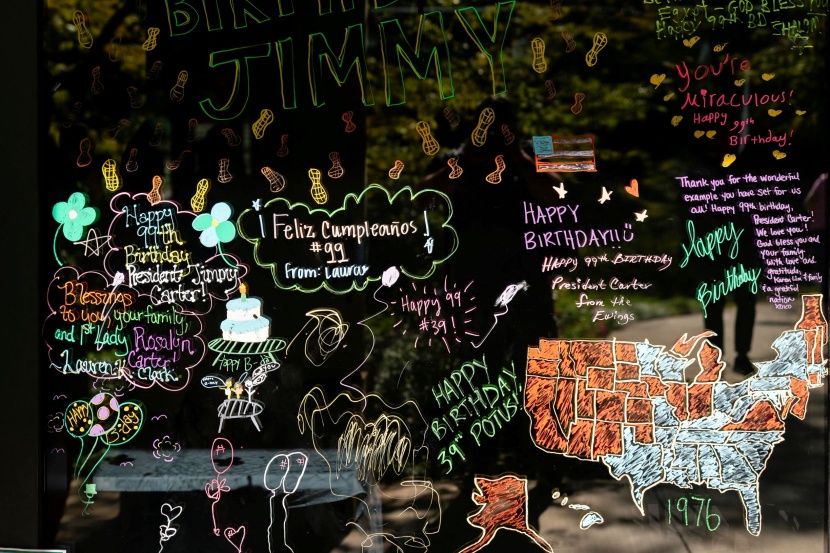 BIRTHDAY
JIMMY
You're
Miraculous!
Happy
99th
Birthday!
Thank you for the wonderful
example you have set for us
all! Happy 99th birthday,
President Carter!
We love you!
God bless you and
your family
with love and
gratitude,
a grateful
nation
xoxo
Happy
99th
Birthday
President Jimmy
Carter!
¡Feliz Cumpleaños!
#99
From: Laura
HAPPY
BIRTHDAY!!
HAPPY 99TH BIRTHDAY
President Carter
from the
Ewings
Happy
Birthday
Blessings
to you, your family,
and 1st Lady Rosalyn
Carter!
Lauren & Mark
Happy 99
#39!
HAPPY B-
HAPPY
BIRTHDAY
39th POTUS!
Jimmy
1976